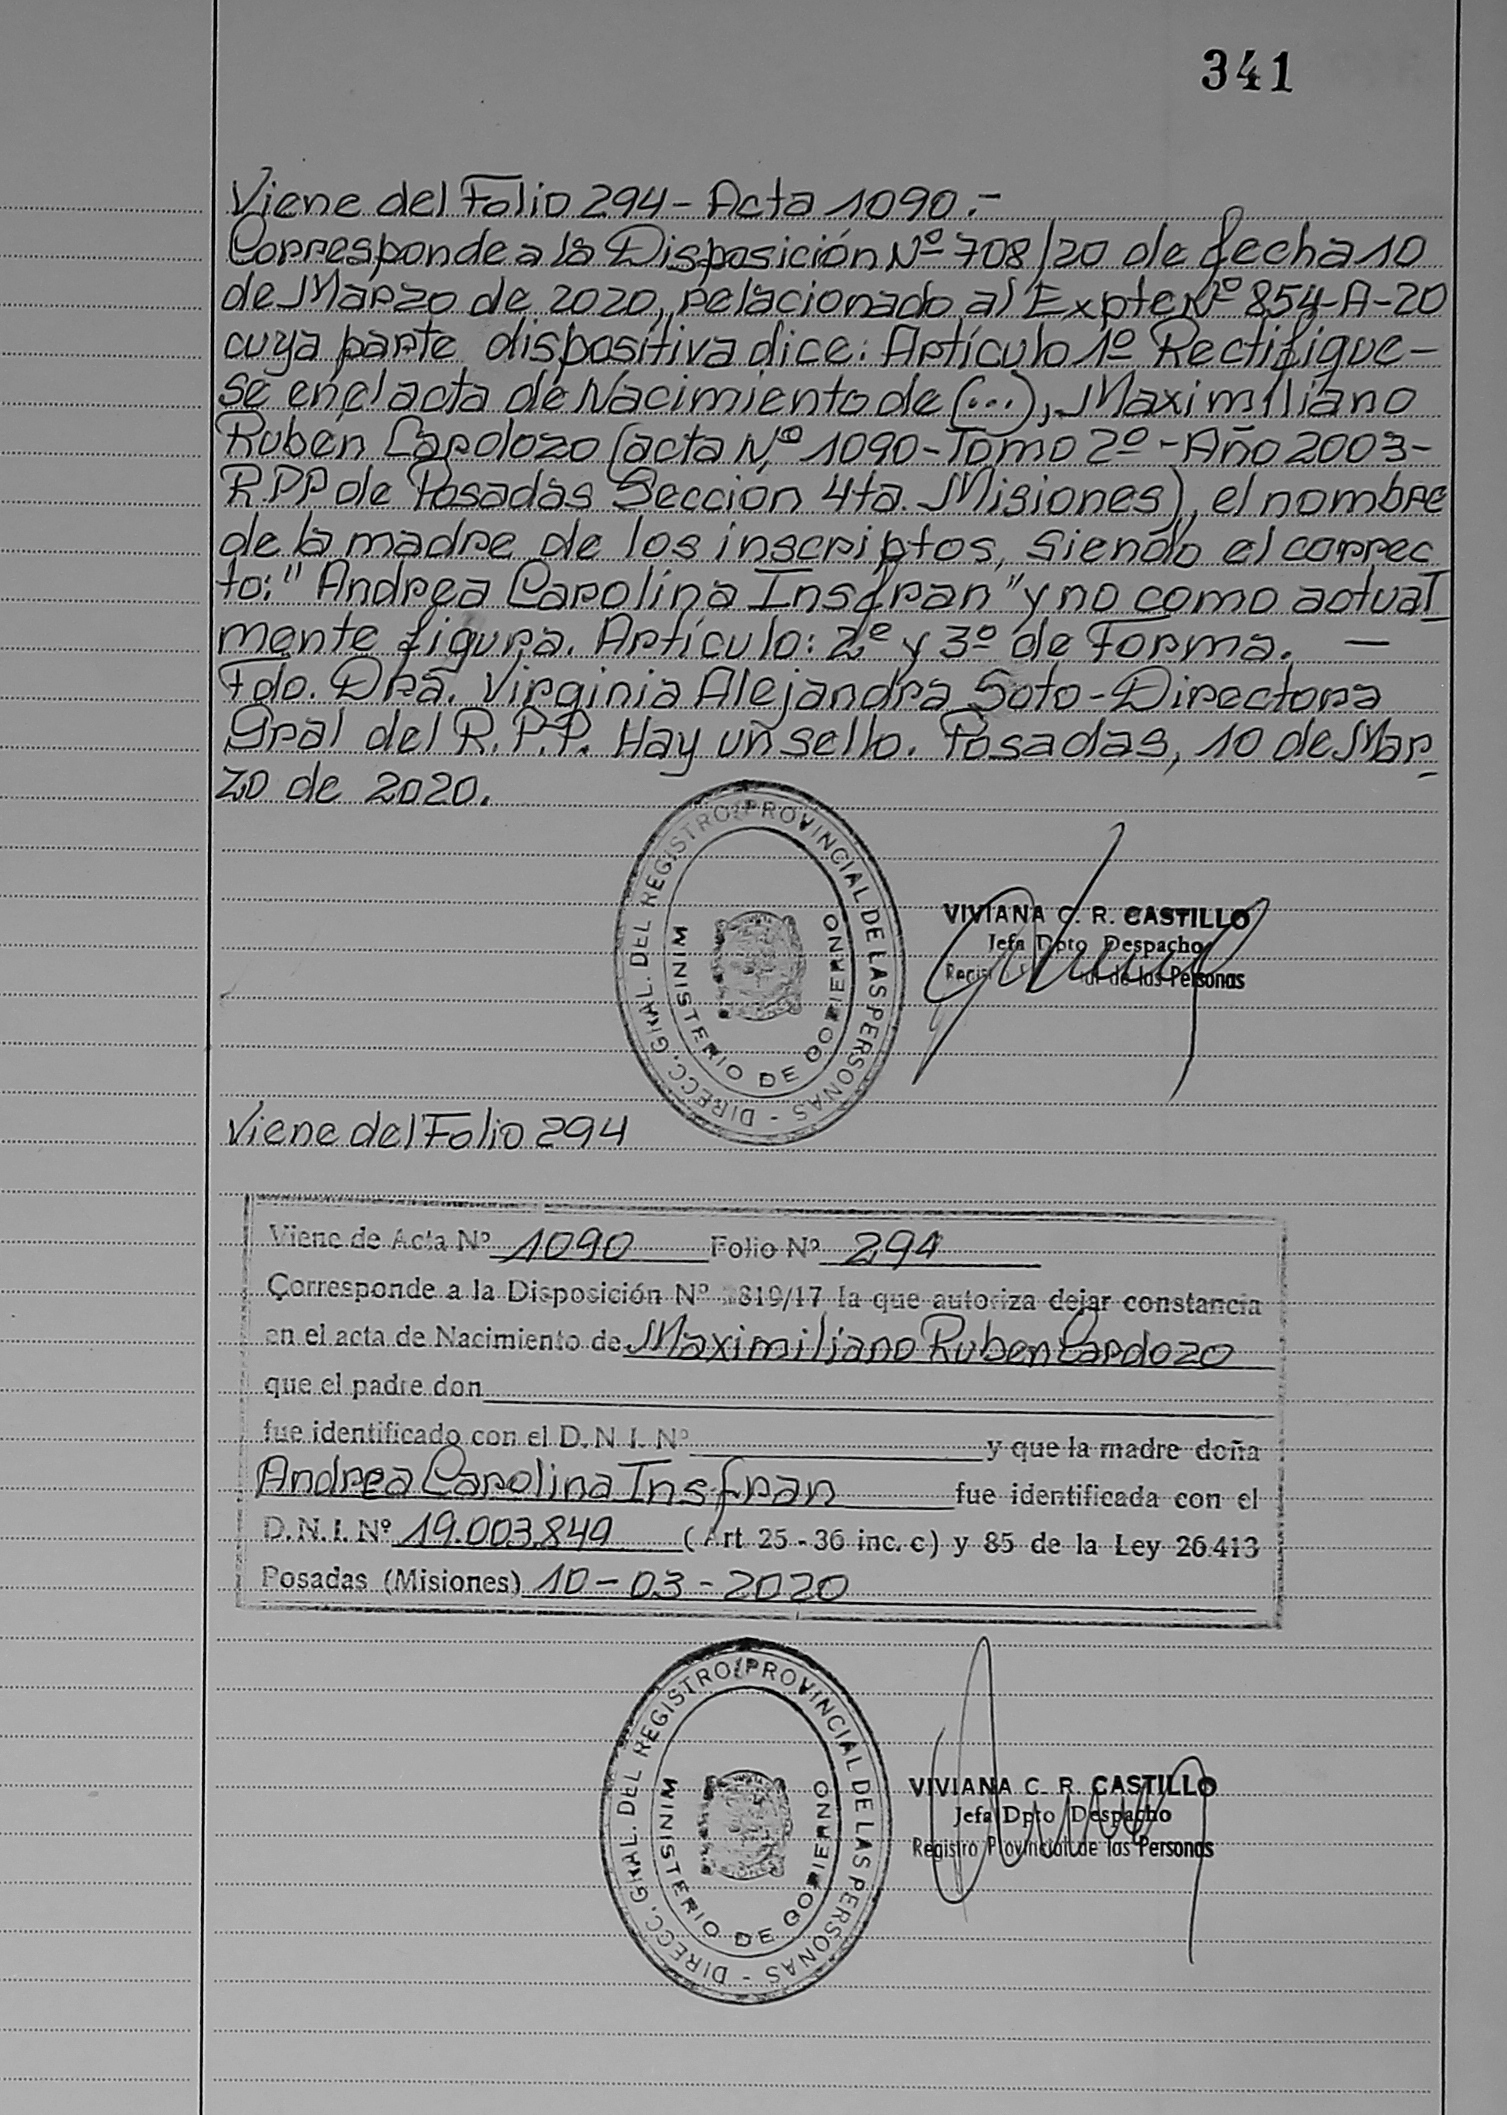 341
Viene del Folio 294 - Acta 1090.-
Corresponde a la Disposición Nº 708/20 de fecha 10
de Marzo de 2020, relacionado al Expte Nº 854-A-20
cuya parte dispositiva dice: Artículo 1º Rectifique-
se en el acta de Nacimiento de (...), Maximiliano
Ruben Cardozo (acta Nº 1090 - Tomo 2º - Año 2003 -
R.P.P de Posadas Sección 4ta. Misiones), el nombre
de la madre de los inscriptos, siendo el correc
to: "Andrea Carolina Insfran" y no como actual
mente figura. Artículo: 2º y 3º de Forma. —
Fdo. Dra. Virginia Alejandra Soto - Directora
Gral del R.P.P. Hay un sello. Posadas, 10 de Mar
zo de 2020.
DIRECC. GRAL. DEL REGISTRO PROVINCIAL DE LAS PERSONAS -
MINISTERIO DE GOBIERNO
VIVIANA C. R. CASTILLO
Jefa Dpto Despacho
de las Personas
Viene del Folio 294
Viene de Acta Nº 1090 Folio Nº 294
Corresponde a la Disposición Nº 819/17 la que autoriza dejar constancia
en el acta de Nacimiento de Maximiliano Ruben Cardozo
que el padre don
fue identificado con el D.N.I. Nº y que la madre doña
Andrea Carolina Insfran fue identificada con el
D.N.I. Nº 19.003.849 (Art 25 - 36 inc. c) y 85 de la Ley 26.413
Posadas (Misiones) 10-03-2020
DIRECC. GRAL. DEL REGISTRO PROVINCIAL DE LAS PERSONAS -
MINISTERIO DE GOBIERNO
VIVIANA C. R. CASTILLO
Jefa Dpto Despacho
Registro Provincial de las Personas